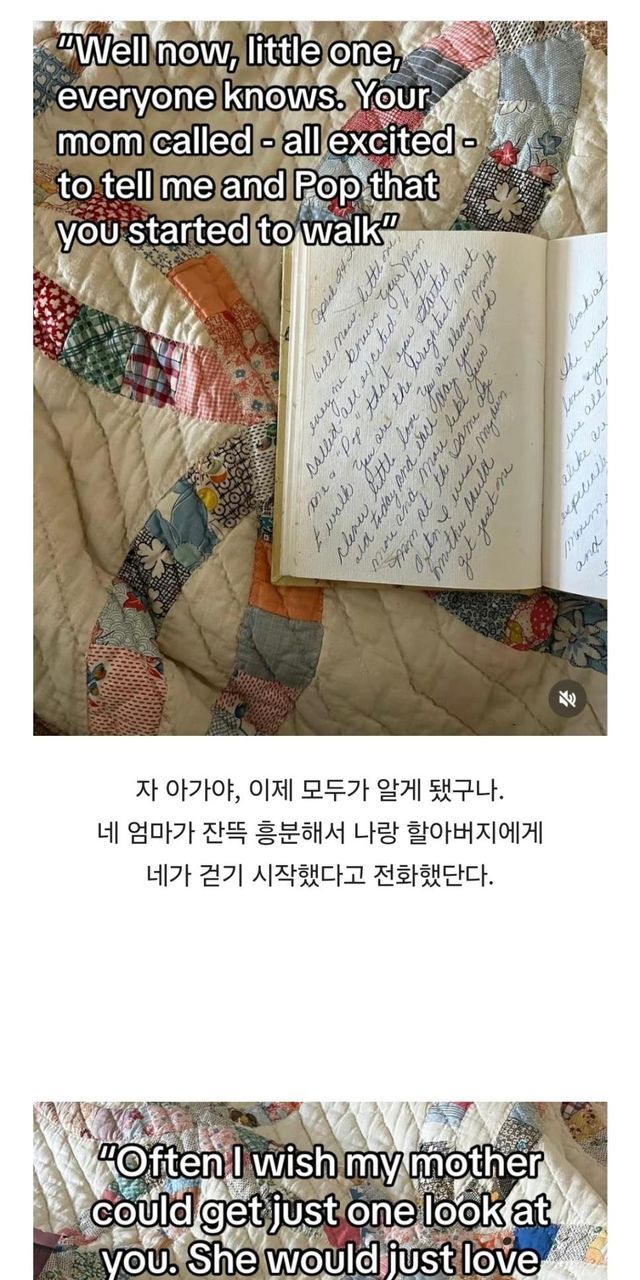 “Well now, little one,
everyone knows. Your
mom called - all excited -
to tell me and Pop that
you started to walk”
Well now little one
everyone knows your Mom
called all excited to tell
me & "Pop" that you started
to walk. You are the brightest most
clever little love. You are eleven months
old today and each day you look
more and more like your
Mom at the same age
Often I wish my own
mother could
get just one
look at
love
all
alike
especially
and
자 아가야, 이제 모두가 알게 됐구나.
네 엄마가 잔뜩 흥분해서 나랑 할아버지에게
네가 걷기 시작했다고 전화했단다.
“Often I wish my mother
could get just one look at
you. She would just love